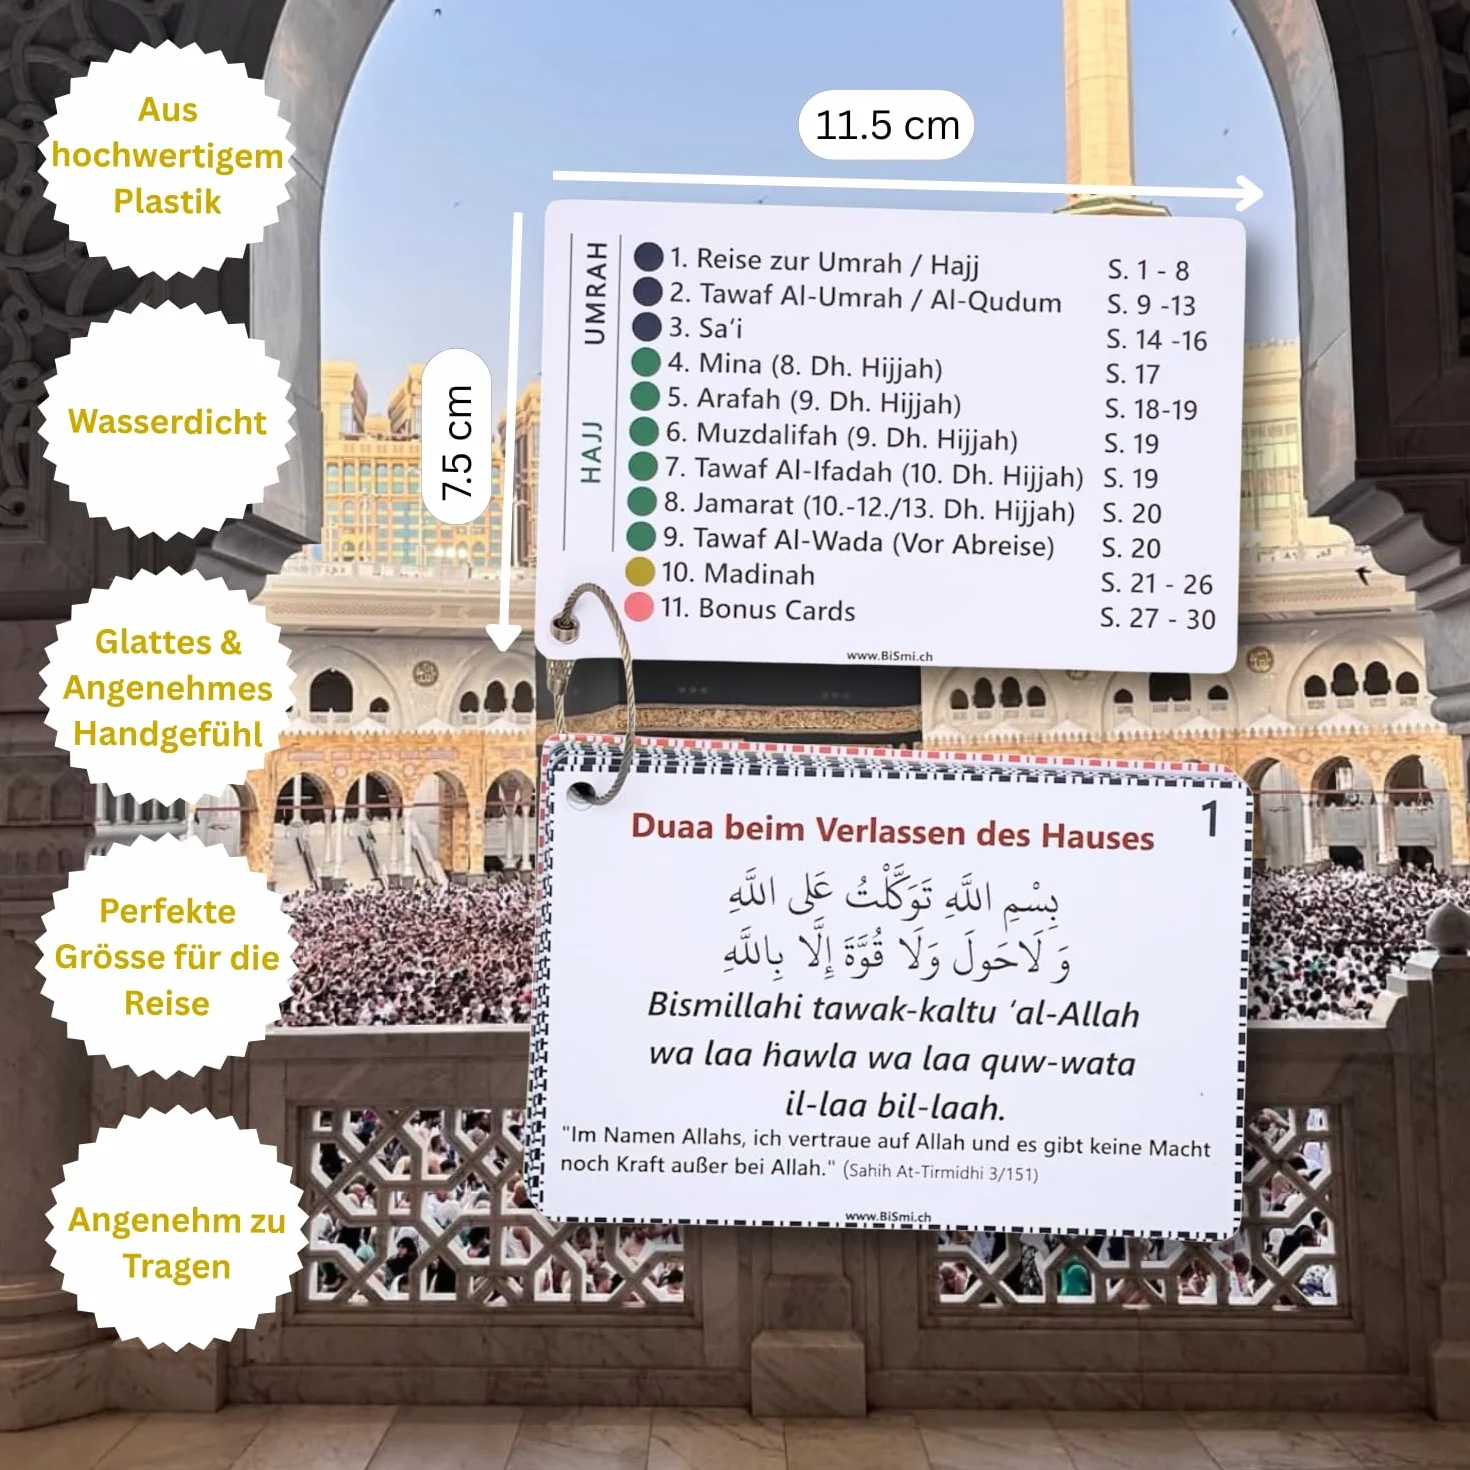 Aus
hochwertigem
Plastik
Wasserdicht
Glattes &
Angenehmes
Handgefühl
Perfekte
Grösse für die
Reise
Angenehm zu
Tragen
11.5 cm
7.5 cm
UMRAH
HAJJ
1. Reise zur Umrah / Hajj S. 1 - 8
2. Tawaf Al-Umrah / Al-Qudum S. 9 -13
3. Sa‘i S. 14 -16
4. Mina (8. Dh. Hijjah) S. 17
5. Arafah (9. Dh. Hijjah) S. 18-19
6. Muzdalifah (9. Dh. Hijjah) S. 19
7. Tawaf Al-Ifadah (10. Dh. Hijjah) S. 19
8. Jamarat (10.-12./13. Dh. Hijjah) S. 20
9. Tawaf Al-Wada (Vor Abreise) S. 20
10. Madinah S. 21 - 26
11. Bonus Cards S. 27 - 30
www.BiSmi.ch
1
Duaa beim Verlassen des Hauses
بِسْمِ اللَّهِ تَوَكَّلْتُ عَلى اللَّهِ
وَ لَاحَولَ وَلَا قُوَّةَ إِلَّا بِاللَّهِ
Bismillahi tawak-kaltu ‘al-Allah
wa laa ḣawla wa laa quw-wata
il-laa bil-laah.
"Im Namen Allahs, ich vertraue auf Allah und es gibt keine Macht
noch Kraft außer bei Allah." (Sahih At-Tirmidhi 3/151)
www.BiSmi.ch